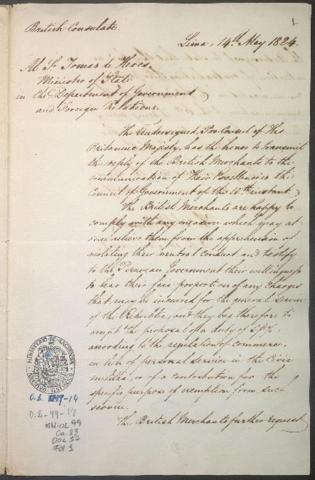 1
British Consulate.
Lima, 14th May 1824.
Al Sr. Tomas de Heres
Minister of State
in the Department of Government
and Foreign Relations.
The Undersigned, Pro-Consul of His
Britannic Majesty, has the honor to transmit
the reply of the British Merchants to the
communication of Their Excellencies the
Council of Government of the 10th instant.
The British Merchants are happy to
comply with any measure which may at
once relieve them from the apprehension of
violating their neutral conduct and testify
to the Peruvian Government their willingness
to bear their fair proportion of any charges
that may be incurred for the general service
of the Republic, and they beg therefore to
accept the proposal of a duty of
according to the regulations of commerce,
in lieu of personal service in the Civic
militia, or of a contribution for the
specific purpose of exemption from such
service.
The British Merchants further request
O.L. 99-14
O.L. 99-17
MH-OL 99
Ca. 23
Doc 57
Fol 1